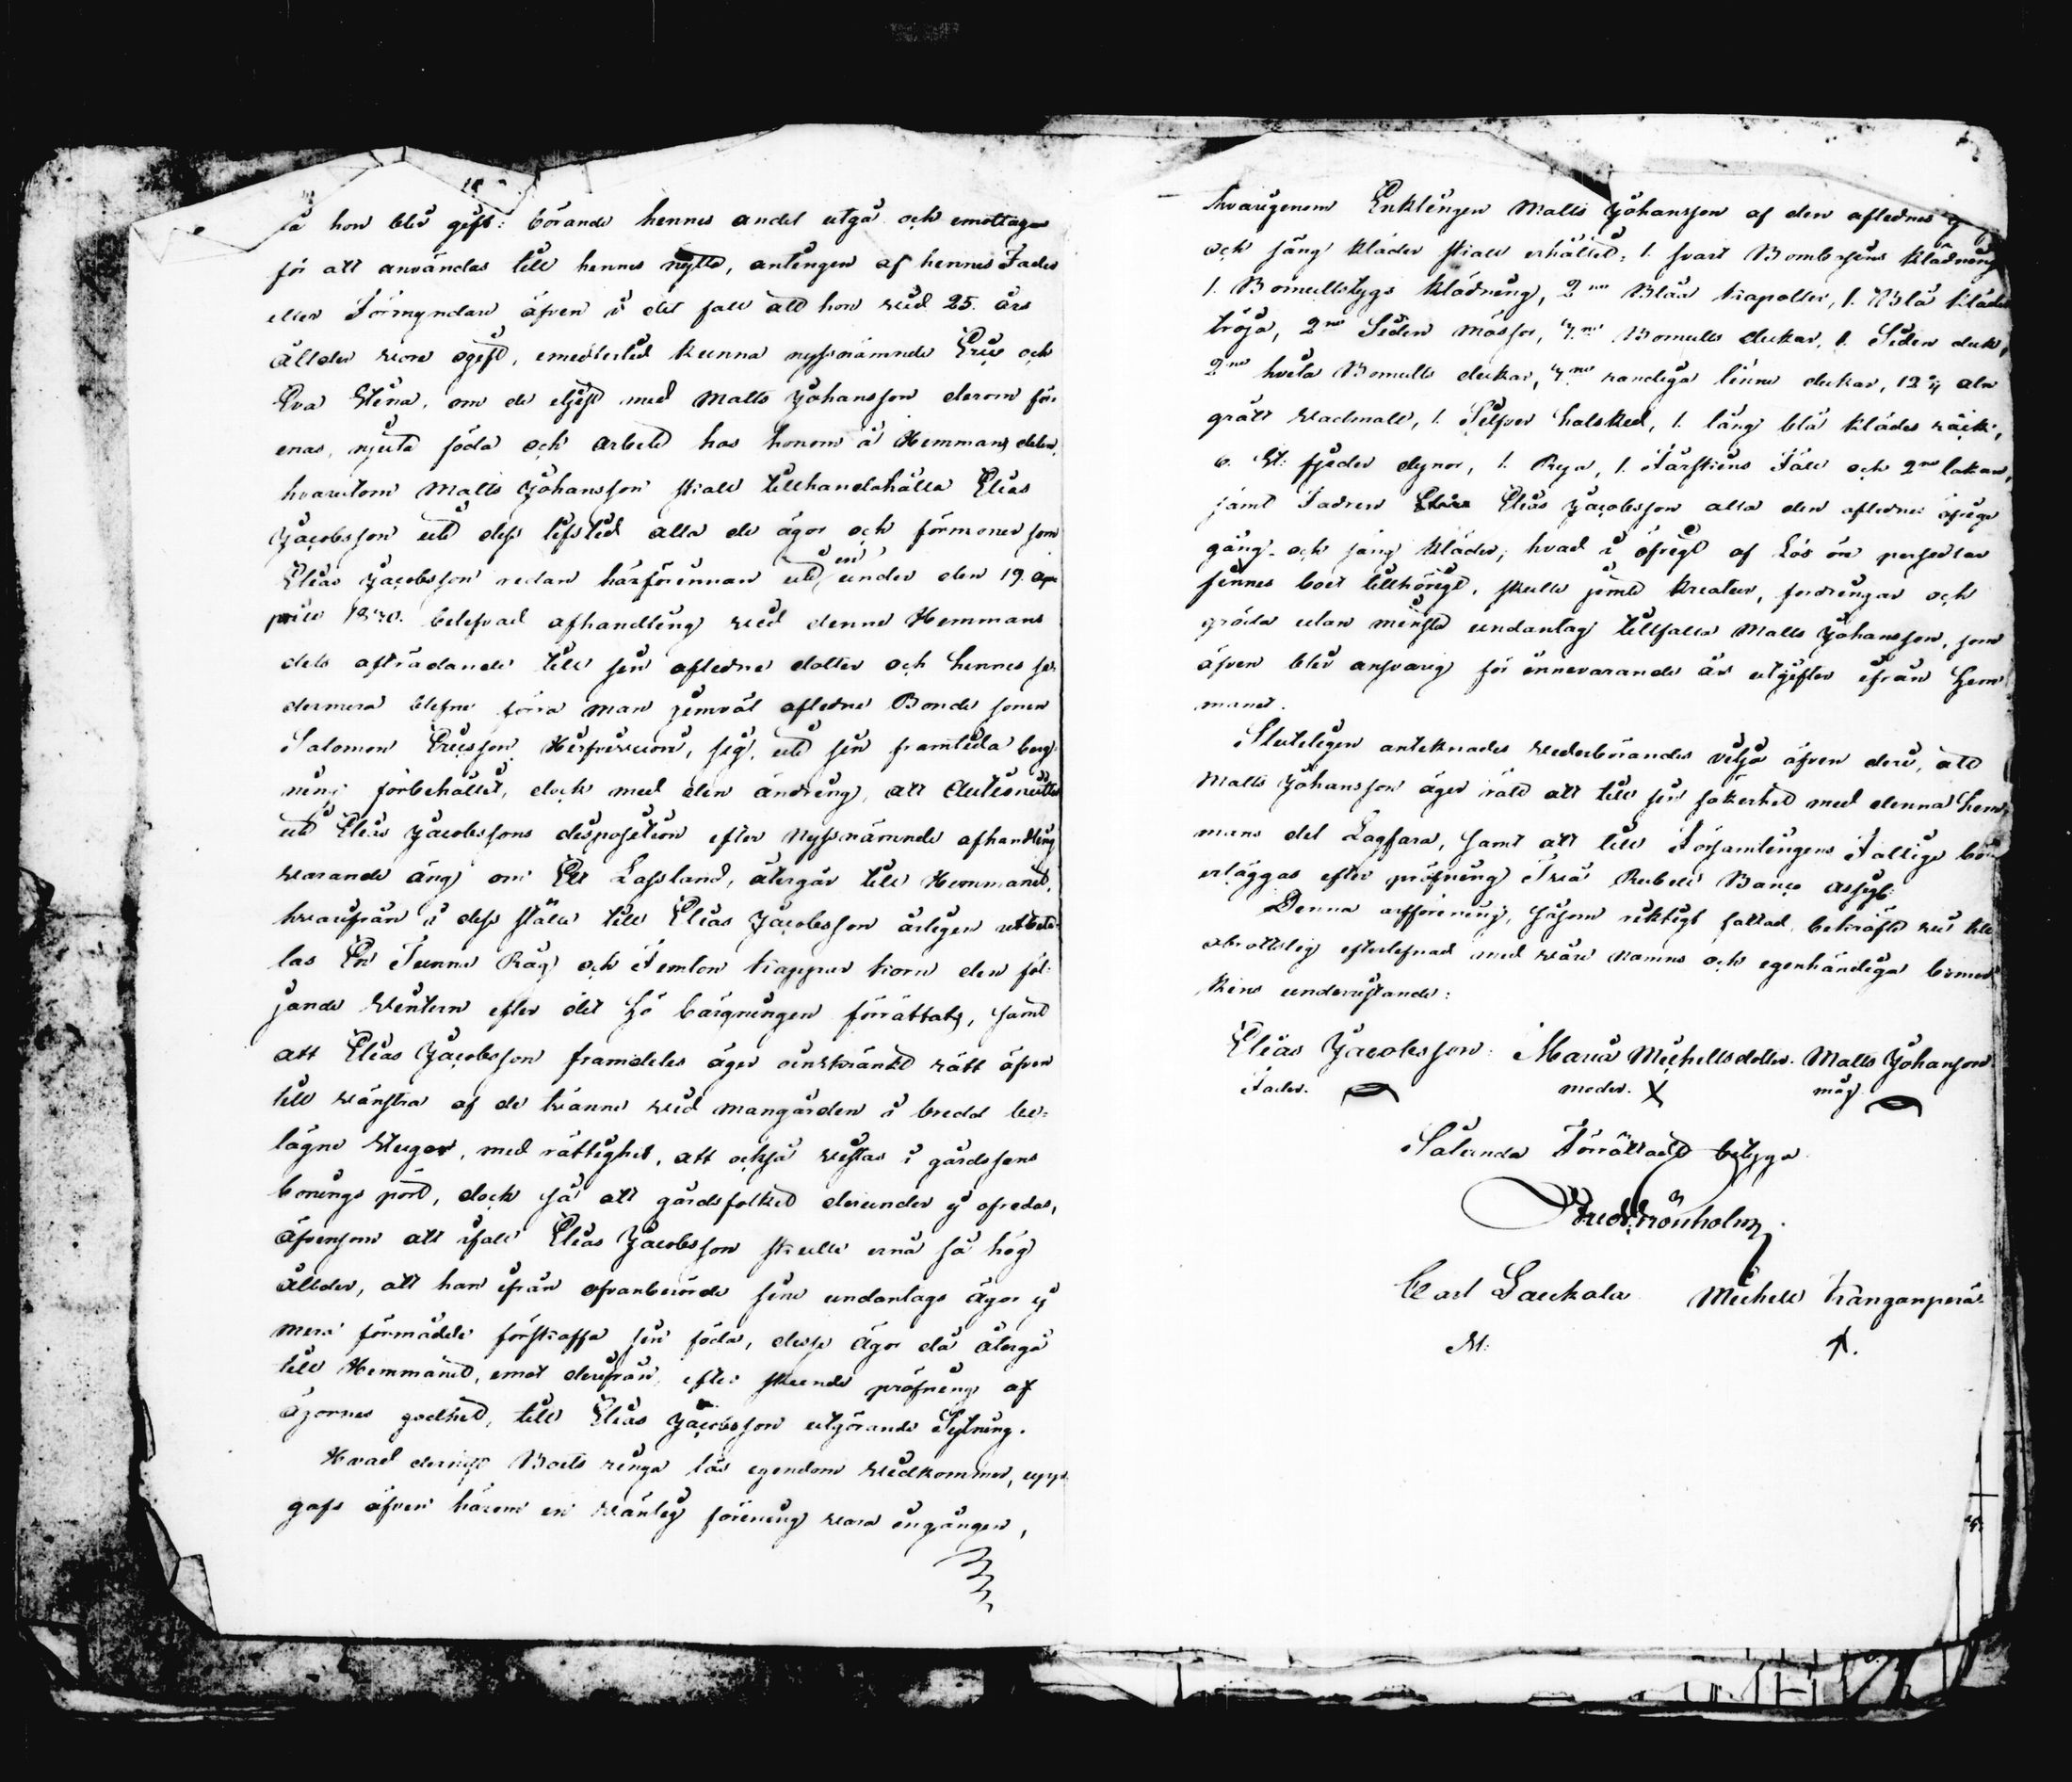 så hon blir gift: börande hennes andel utgå och emottagas
för att användas till hennes nytta, antingen af hennes Fader
eller Förmyndare äfven i det fall att hon wid 25. års
ållder wore ogift, emedlertid kunna nyssnämnde Eric och
Eva Stina, om de eljest med Matts Johansson derom för-
enas, njuta föda och arbete hos honom å Hemmans delen,
hvarutom Matts Johansson skall tillhandahålla Elias
Jacobsson uti dess lifstid alla de ägor och förmoner som
Elias Jacobsson redan härförinnan uti en under den 19. Ap-
prill 1830. belefvad afhandling wid denne Hemmans
dels afträdande till sin aflidne dotter och hennes se-
dermera blefne förra man jemväl aflidne Bonde sonen
Salomon Ericsson Hirfvisuoni, sig, uti sin framtida berg-
ning förbehållit, dock med den ändring, att
uti Elias Jacobssons disposition efter nyssnämnde afhandling
warande äng om Ett Lassland, återgår till Hemmanet,
hvarifrån i dess ställe till Elias Jacobsson årligen utbeta-
las En Tunna Råg och Femton kappar korn den föl-
jande Wintern efter det Hö bärgningen förrättats, samt
att Elias Jacobsson framdeles äger oinskränkt rätt äfven
till wänstra af de tvänne wid mangården i bredd be-
lägne Stugor, med rättighet, att också wistas i gårdsens
bonings pört, dock så att gårdsfolket derunder ej ofredas,
äfvensom att ifall Elias Jacobsson skulle ernå så hög
ållder, att han ifrån ofvanberörde sine undantags ägor ej
mera förmådde förskaffa sin föda, desse ägor då återgå
till Hemmanet, emot derifrån, efter skeende pröfning af
ägornes godhet, till Elias Jacobsson utgörande Sytning.
Hvad deremot Boets ringa lös egendom widkommer, upp-
gafs äfven härom en wänlig förening wara ingången,
hvarigenom Enklingen Matts Johansson af den aflednes g
och säng kläder skall erhållit: 1. svart Bombasins klädning
1. Bomullstygs klädning, 2ne Blåa kapotter, 1. Blå klädes
tröja, 2ne Siden mössor, 4.ne Bomulls dukar, 1. Siden duk,
2ne hvita Bomulls dukar, 4ne randiga linne dukar, 12 3/4 aln
grått wadmall, 1. Silfver halsked, 1. lång blå klädes råck,
6. St: fjeder dynor, 1. Rya, 1. Fårskins Fäll och 2ne lakan,
jämt Fadren Elias Jacobsson alla den aflednes öfrige
gång- och säng kläder; hvad i öfrigt af Lös öre persedlar
finnes boet tillhörigt, skulle jemte kreatur, fordringar och
gröda utan minsta undantag tillfalla Matts Johansson, som
äfven blir ansvarig för innevarande års utgifter ifrån Hem-
manet.
Sluteligen anteknades wederbörandes vilja äfven deri, att
Matts Johansson äger rätt att till sin säkerhet med denna Hem-
mans del Lagfara, samt att till Församlingens Fattige bör
erläggas efter pröfning Två Rubel Banco Assign:
Denna afförening, såsom riktigt fattad, bekräfte wi till
obrottslig efterlefnad med wåre namns och egenhändiga bomär-
kens underristande:
Elias Jacobsson. Maria Michellsdotter. Matts Johansson
Fader. moder. X måg
Sålunda Förrättadt betyga
Fredr Grönholm
Carl Laukala Michell Kanganperä
M: